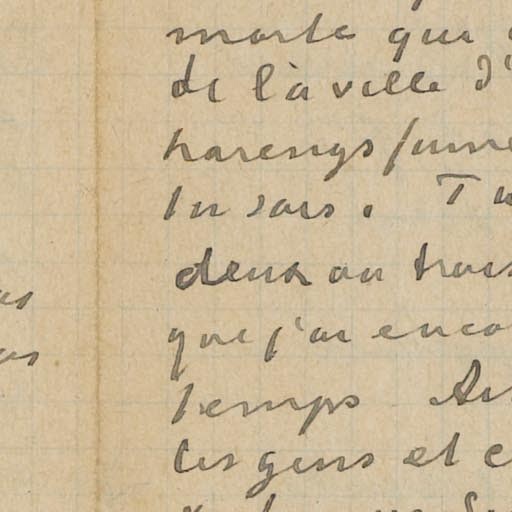 morte que
de la ville d'
harengs fume
tu sais. Tu
deux ou trois
que j'ai enco
temps
les gens et c